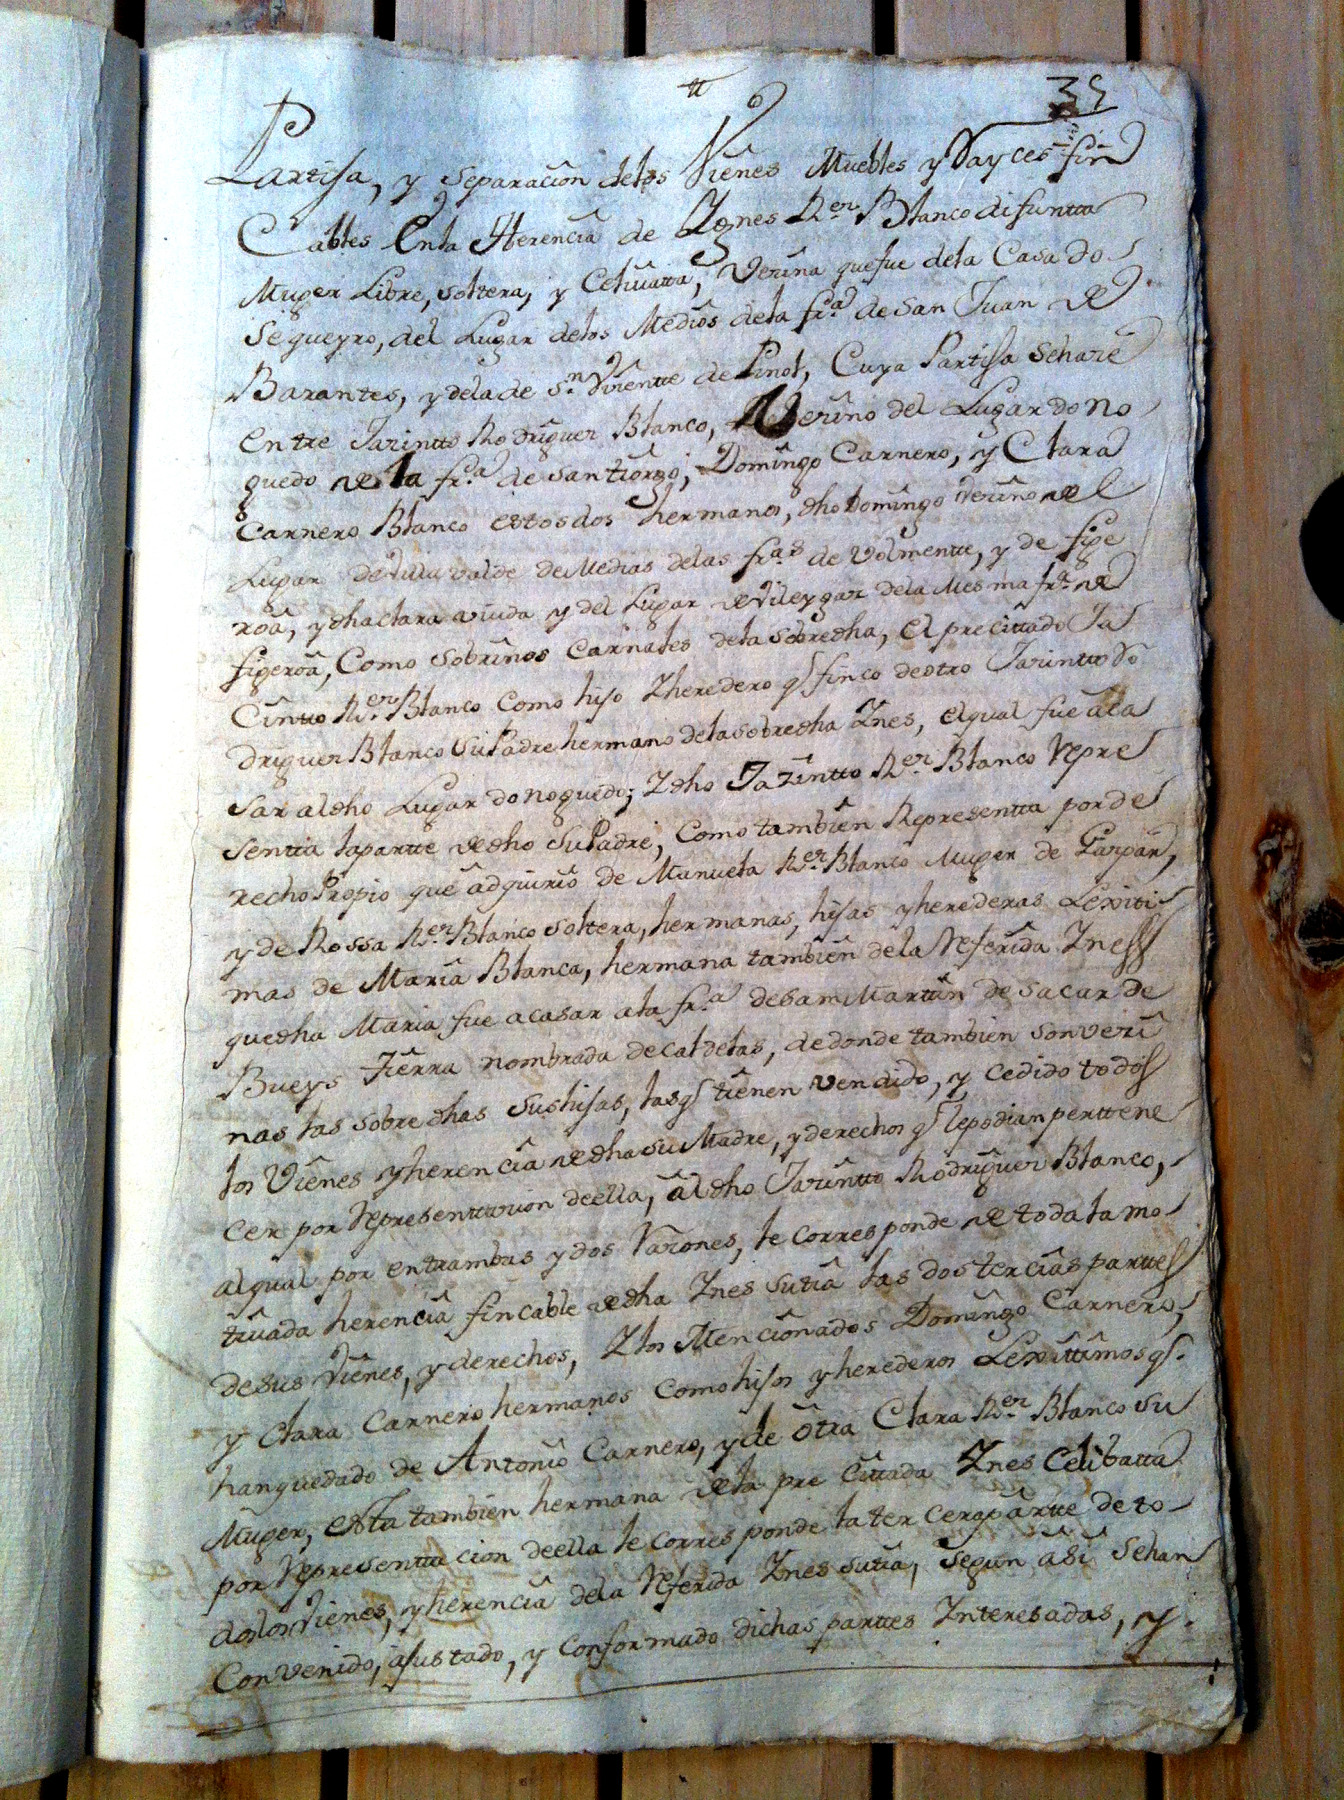 tt
35
Partisa, y Separacion delos Vienes Muebles y Rayces fin
Cables Enla Herencia de Ygnes Rer. Blanco difuntta
Muger Libre, soltera, y Celivatta, Vecina quefue dela Casa do
Segueyro, del Lugar delos Medios dela fra. de San Juan de
Barantes, y dela de Sn. Vizente de Pinol, Cuya Partisa Sehaze
Entre Jazintto Rodriguez Blanco, Vecino del Lugar do No
guedo de la fra. de Santiorgo; Domingo Carnero, y Clara
Carnero Blanco estos dos hermanos, dho Domingo Vecino del
Lugar de Villa valde de Medias delas fras. de Volmentte, y de fige
roa, y dha clara viuda y del Lugar de Vileygar dela Mesma fra. de
figeroa, Como Sobrinos Carnales dela Sobredha, el precittado Ja
Cintto Rer. Blanco Como hiso Y heredero q finco de otro Jazintto Ro
driguez Blanco Su Padre hermano dela sobredha Ynes, el qual fue a Ca
sar al dho Lugar do Noguedo; Y dho Jazintto Rer. Blanco Repre
sentta la partte de dho Su Padre, Como tambien Representta por de
recho Propio que adquirio de Manuela Rer. Blanco Muger de Gaspar,
y de Rossa Rer. Blanco soltera, hermanas, hijas y herederas Lexiti
mas de Maria Blanca, hermana tambien dela Referida Ynes
que dha Maria fue a casar a la fra. de Sam Martin de Sacarde
Bueys tierra nombrada de caldelas, de donde tambien son veci
nas las sobre dhas Sus hisas, las q tienen vendido, y cedido todos
los Vienes y herencia de dha su Madre, y derechos q le podian perttene
cer por Representtacion de ella, al dho Jazintto Rodriguez Blanco,
al qual por entrambas y dos Razones, le corresponde de toda la mo
tivada herencia fincable de dha Ynes su tia las dos tercias parttes
de sus Vienes, y derechos, Y los Mencionados Domingo Carnero,
y Clara Carnero hermanos Como hisos y herederos Lexittimos q
han quedado de Antonio Carnero, y de otra Clara Rer. Blanco su
Muger, esta tambien hermana de la pre Cittada Ynes Celibatta
por Representtacion de ella le corresponde la tercera partte de to
dos los Vienes, y herencia dela Referida Ynes su tia, Segun asi Sehan
Convenido, ajustado, y Conformado dichas parttes Interesadas, y.